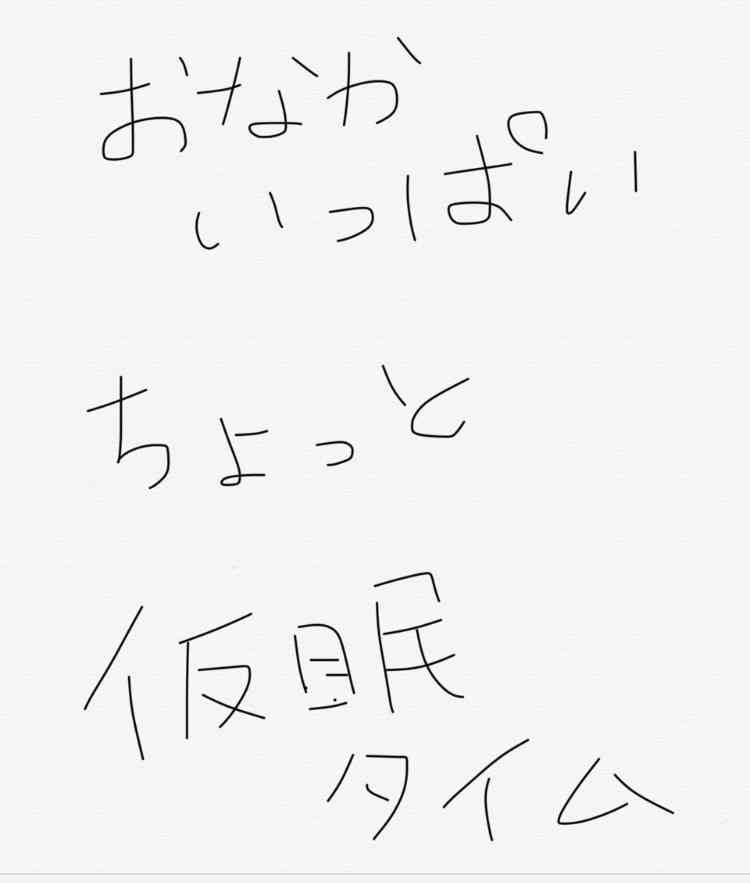 おなか
いっぱい
ちょっと
仮眠
タイム